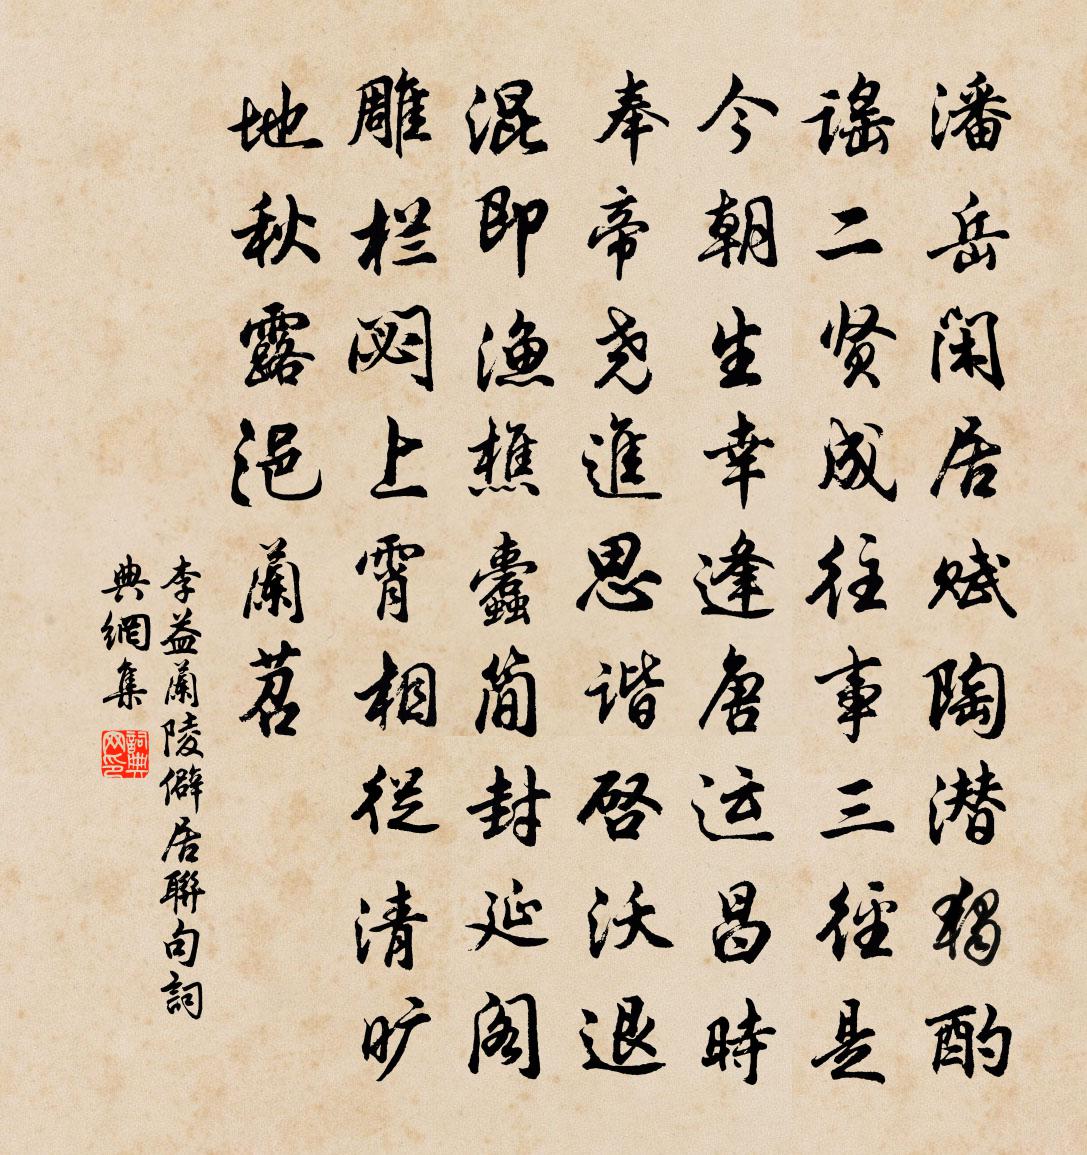 潘岳闲居赋陶潜独酌
谣二贤成往事三径是
今朝生幸逢唐运昌時
奉帝尧進思谐啓沃退
混即渔樵蠹简封延阁
雕栏閟上霄相從清旷
地秋露浥蘭苕
李益蘭陵僻居聯句詞
典網集
詞典
网印